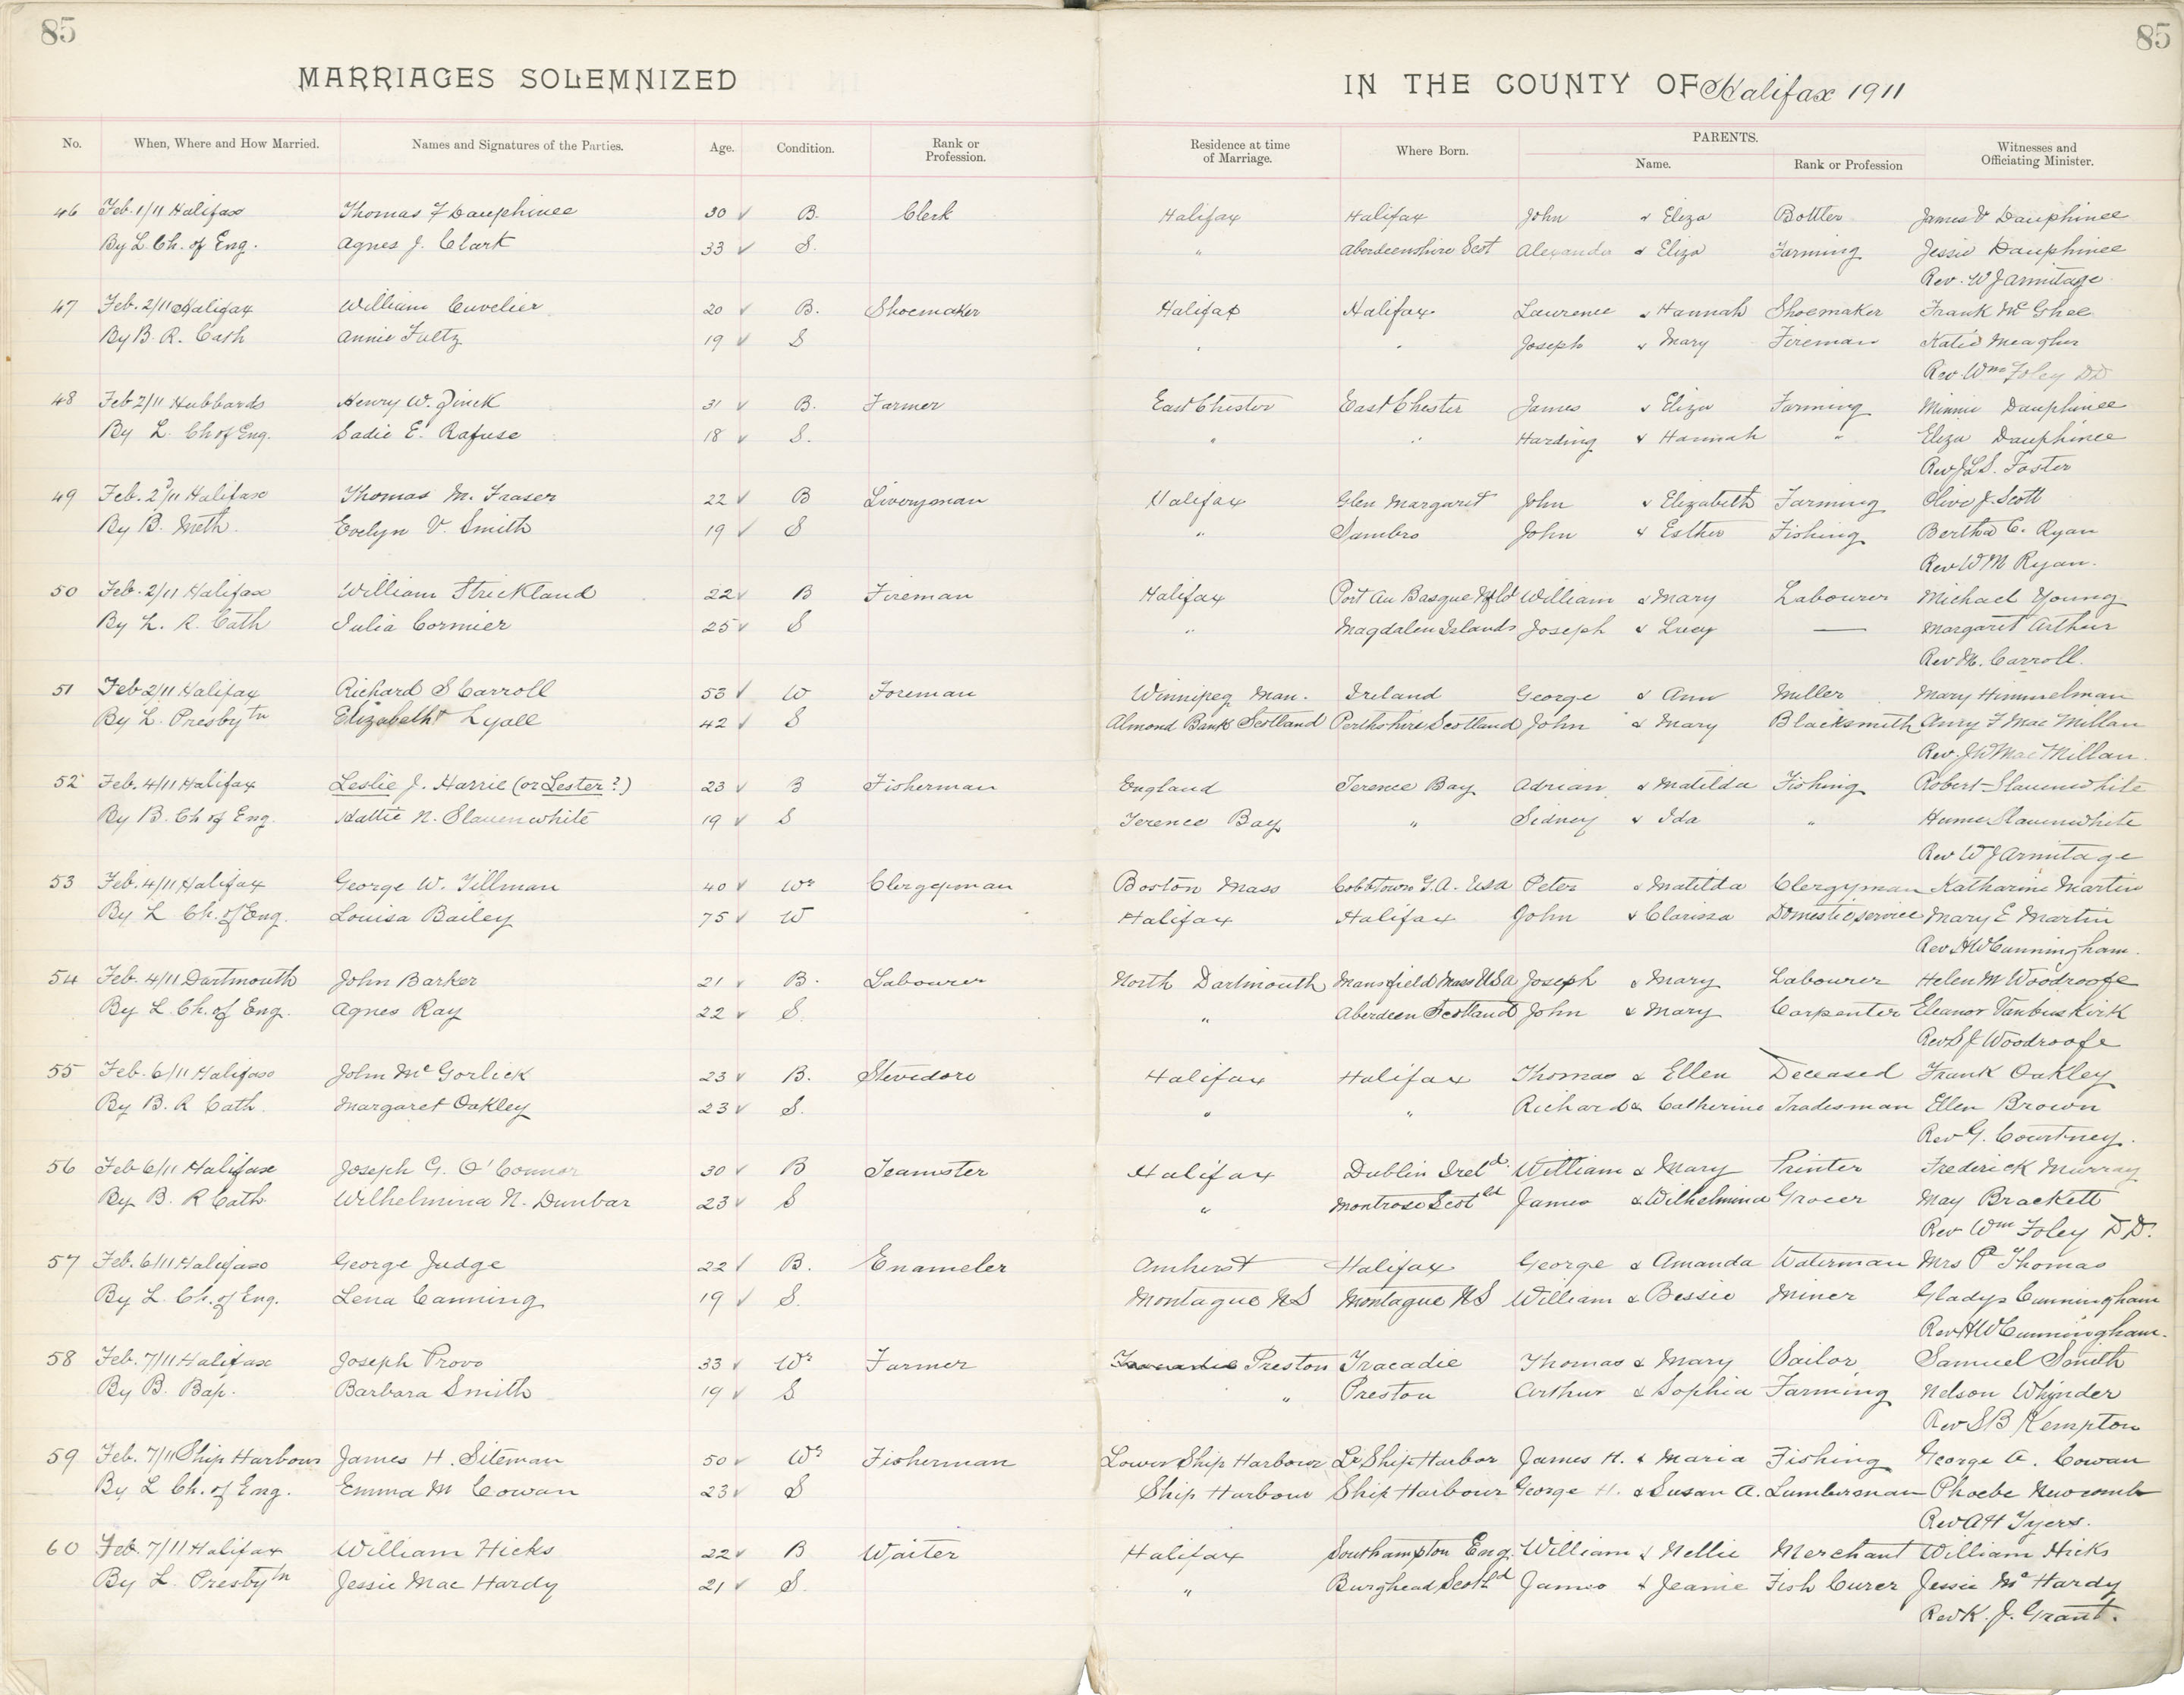 85 85
MARRIAGES SOLEMNIZED IN THE COUNTY OF Halifax 1911
No. When, Where and How Married. Names and Signatures of the Parties. Age. Condition. Rank or Profession. Residence at time of Marriage. Where Born. PARENTS. Name. Rank or Profession Witnesses and Officiating Minister.
46 Feb. 1/11 Halifax Thomas F Dauphinee 30 ✓ B. Clerk Halifax Halifax John & Eliza Bottler James V Dauphinee
By L. Ch. of Eng. Agnes J. Clark 33 ✓ S. " Aberdeenshire Scot Alexander & Eliza Farming Jessie Dauphinee
Rev. W J Armitage
47 Feb. 2/11 Halifax William Cuvelier 20 ✓ B. Shoemaker Halifax Halifax Laurence & Hannah Shoemaker Frank McGhee
By B. R. Cath Annie Fultz 19 ✓ S " " Joseph & Mary Fireman Katie Meagher
Rev. Wm Foley DD
48 Feb 2/11 Hubbards Henry W. Zinck 31 ✓ B. Farmer East Chester East Chester James & Eliza Farming Minnie Dauphinee
By L. Ch of Eng. Sadie E. Rafuse 18 ✓ S. " " Harding & Hannah " Eliza Dauphinee
Rev J L S. Foster
49 Feb. 2/11 Halifax Thomas M. Fraser 22 ✓ B Liveryman Halifax Glen Margaret John & Elizabeth Farming Olive J. Scott
By B. Meth. Evelyn V. Smith 19 ✓ S " Sambro John & Esther Fishing Bertha C. Ryan
Rev W M Ryan.
50 Feb. 2/11 Halifax William Strickland 22 ✓ B Fireman Halifax Port Au Basque Nfld William & Mary Labourer Michael Young
By L. R. Cath Julia Cormier 25 ✓ S " Magdalen Islands Joseph & Lucy — Margaret Arthur
Rev M. Carroll.
51 Feb 2/11 Halifax Richard S Carroll 53 ✓ W Foreman Winnipeg Man. Ireland George & Ann Miller Mary Himmelman
By L. Presbytn Elizabeth Lyall 42 ✓ S Almond Bank Scotland Perthshire Scotland John & Mary Blacksmith F MacMillan
Rev. J W MacMillan.
52 Feb. 4/11 Halifax Leslie J. Harrie (or Lester?) 23 ✓ B Fisherman England Terence Bay Adrian & Matilda Fishing Robert Slauenwhite
By B. Ch of Eng. Hattie N. Slauenwhite 19 ✓ S Terence Bay " Sidney & Ida " Hume Slauenwhite
Rev W J Armitage
53 Feb. 4/11 Halifax George W. Tillman 40 ✓ Wr Clergyman Boston Mass Cobbtown G.A. USA Peter & Matilda Clergyman Katharine Martin
By L Ch. of Eng. Louisa Bailey 75 ✓ W Halifax Halifax John & Clarissa Domestic service Mary E Martin
Rev H W Cunningham.
54 Feb. 4/11 Dartmouth John Barker 21 ✓ B. Labourer North Dartmouth Mansfield Mass USA Joseph & Mary Labourer Helen M Woodroofe
By L. Ch. of Eng. Agnes Ray 22 ✓ S. " Aberdeen Scotland John & Mary Carpenter Eleanor Vanbuskirk
Rev S J Woodroofe
55 Feb. 6/11 Halifax John McGorlick 23 ✓ B. Stevedore Halifax Halifax Thomas & Ellen Deceased Frank Oakley
By B. R Cath. Margaret Oakley 23 ✓ S. " " Richard & Catherine Tradesman Ellen Brown
Rev G. Courtney.
56 Feb 6/11 Halifax Joseph G. O'Connor 30 ✓ B Teamster Halifax Dublin Ireld. William & Mary Printer Frederick Murray
By B. R Cath. Wilhelmina N. Dunbar 23 ✓ S " Montrose Scotld James & Wilhelmina Grocer May Brackett
Rev Wm Foley DD.
57 Feb. 6/11 Halifax George Judge 22 ✓ B. Enameler Amherst Halifax George & Amanda Waterman Mrs P Thomas
By L. Ch. of Eng. Lena Canning 19 ✓ S. Montague NS Montague NS William & Bessie Miner Gladys Cunningham
Rev H W Cunningham.
58 Feb. 7/11 Halifax Joseph Provo 33 ✓ Wr Farmer Tracadie Preston Tracadie Thomas & Mary Sailor Samuel Smith
By B. Bap. Barbara Smith 19 ✓ S " Preston Arthur & Sophia Farming Nelson Whynder
Rev S B Kempton
59 Feb. 7/11 Ship Harbour James H. Siteman 50 ✓ Wr Fisherman Lower Ship Harbour Lr Ship Harbor James H. & Maria Fishing George A. Cowan
By L Ch. of Eng. Emma M Cowan 23 ✓ S Ship Harbour Ship Harbour George H. & Susan A. Lumberman Phoebe Newcomb
Rev A H Tyers.
60 Feb. 7/11 Halifax William Hicks 22 ✓ B Waiter Halifax Southampton Eng. William & Nellie Merchant William Hicks
By L. Presbytn Jessie MacHardy 21 ✓ S. " Burghead Scotld James & Jeanie Fish Curer Jessie McHardy
Rev K. J. Grant.